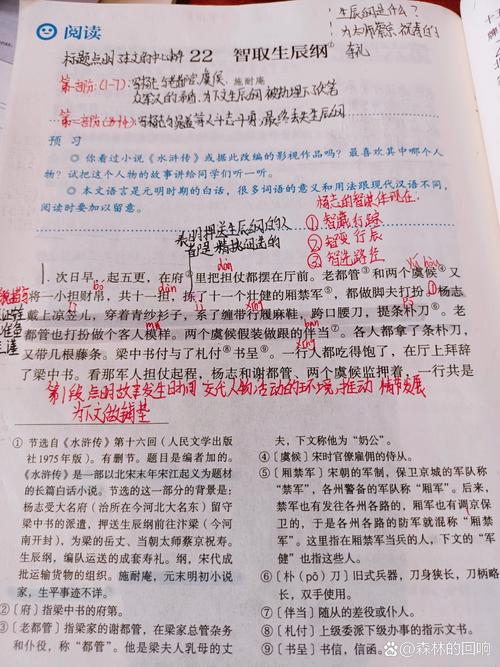 阅读
生辰纲是什么?
为太师蔡京祝寿的
寿礼
标题点明
22 智取生辰纲①
施耐庵
第一部分:(1-7):写杨志与老都管、虞候、
众军汉的矛盾,为下文生辰纲被劫埋下伏笔
预 习
◎ 你看过小说《水浒传》或据此改编的影视作品吗?最喜欢其中哪个人
物?试把这个人物的故事讲给同学们听一听。
◎ 本文语言是元明时期的白话,很多词语的意义和用法跟现代汉语不同,
阅读时要加以留意。
杨志的智谋体现在:
①智藏行踪
②智变行辰
③智选路径
表明押送生辰纲的人
都是精挑细选的
次日早,起五更,在府②里把担仗都摆在厅前。老都管③和两个虞候④又
将一小担财帛,共十一担,拣了十一个壮健的厢禁军⑤,都做脚夫打扮。杨志
戴上凉笠儿,穿着青纱衫子,系了缠带行履麻鞋,跨口腰刀,提条朴刀⑥。老
都管也打扮做个客人模样。两个虞候假装做跟的伴当⑦。各人都拿了条朴刀,
又带几根藤条。梁中书付与了札付⑧书呈⑨。一行人都吃得饱了,在厅上拜辞
了梁中书。看那军人担仗起程,杨志和谢都管、两个虞候监押着,一行共是
第1段 点明故事发生时间 交代人物活动的环境,推动 情节发展
为下文做铺垫
① 节选自《水浒传》第十六回(人民文学出版
社1975年版)。有删节。题目是编者加的。
《水浒传》是一部以北宋末年宋江起义为题材
的长篇白话小说。节选的这一部分的背景是:
杨志受大名府(治所在今河北大名东)留守
梁中书的派遣,押送生辰纲前往汴梁(今河
南开封),为梁的岳丈、当朝太师蔡京祝寿。
生辰纲,编队运送的成套寿礼。纲,宋代成
批运输货物的组织。施耐庵,元末明初小说
家,生平事迹不详。
②〔府〕指梁中书的府第。
③〔老都管〕指梁家的谢都管,在梁家总管杂务
和仆役,称“都管”。他是梁夫人乳母的丈
夫,下文称他为“奶公”。
④〔虞候〕宋时官僚雇佣的侍从。
⑤〔厢禁军〕宋朝的军制,保卫京城的军队称
“禁军”,各州警备的军队称“厢军”。后来,
禁军也有发往各州各路的,厢军也有调京保卫
的,于是各州各路的防军就混称“厢禁
军”。这里指在厢禁军当兵的人,下文的“军
健”也指这些人。
⑥〔朴(pō)刀〕旧式兵器,刀身狭长,刀柄略
长,双手使用。
⑦〔伴当〕随从的差役或仆人。
⑧〔札付〕上级委派下级办事的指示文书。
⑨〔书呈〕书信,信函。
@森林的回响